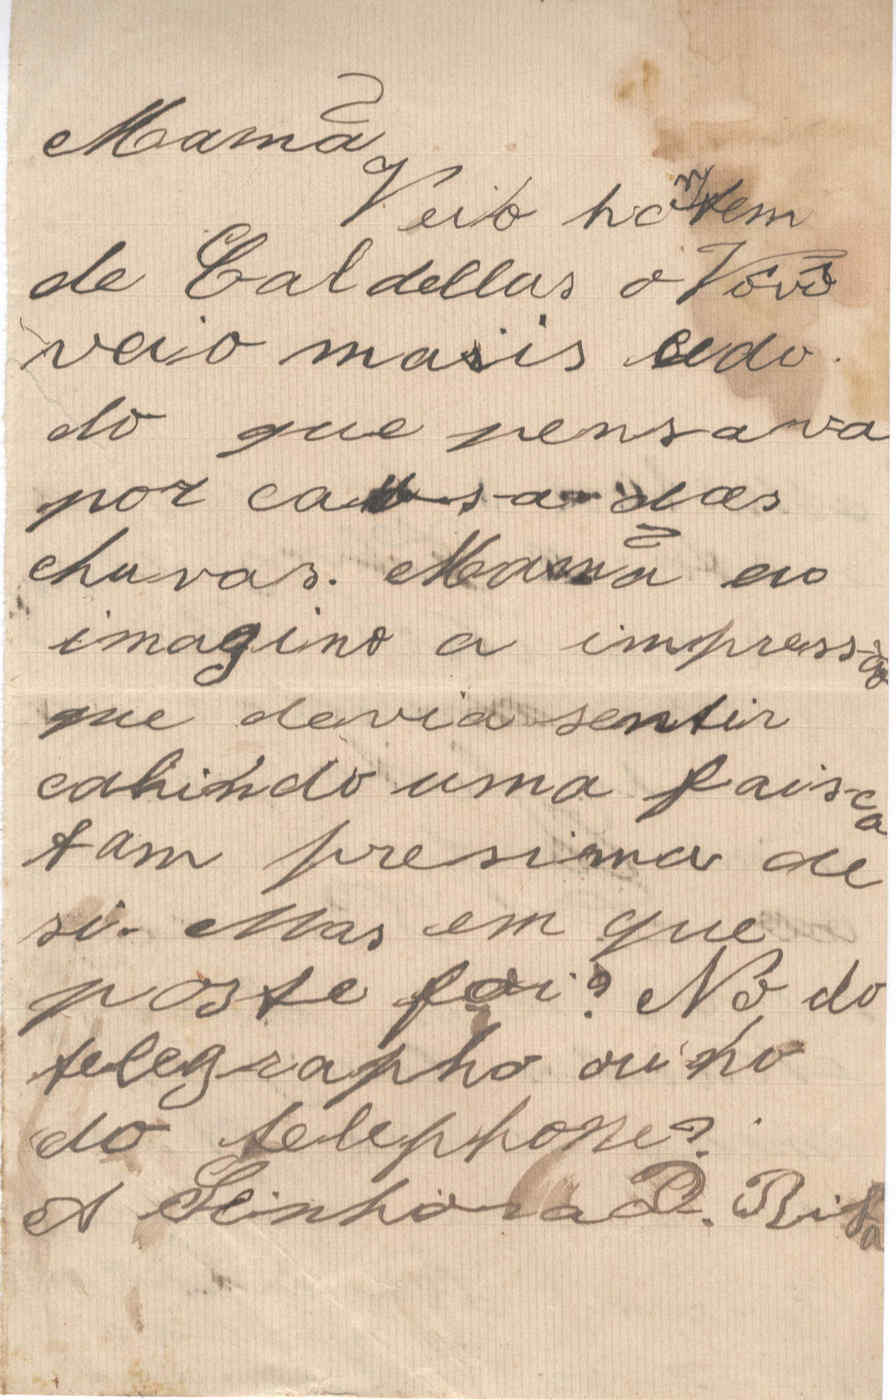 Mamã
Veio hontem
de Caldellas o Vôvô
veio masis cedo
do que pensava
por causa das
chuvas. Mamã eu
imagino a impressão
que devia sentir
cahindo uma faisca
tam presima de
si. Mas em que
poste foi? No do
telegrapho ou no
do telephone?
A Senhora D. Rita